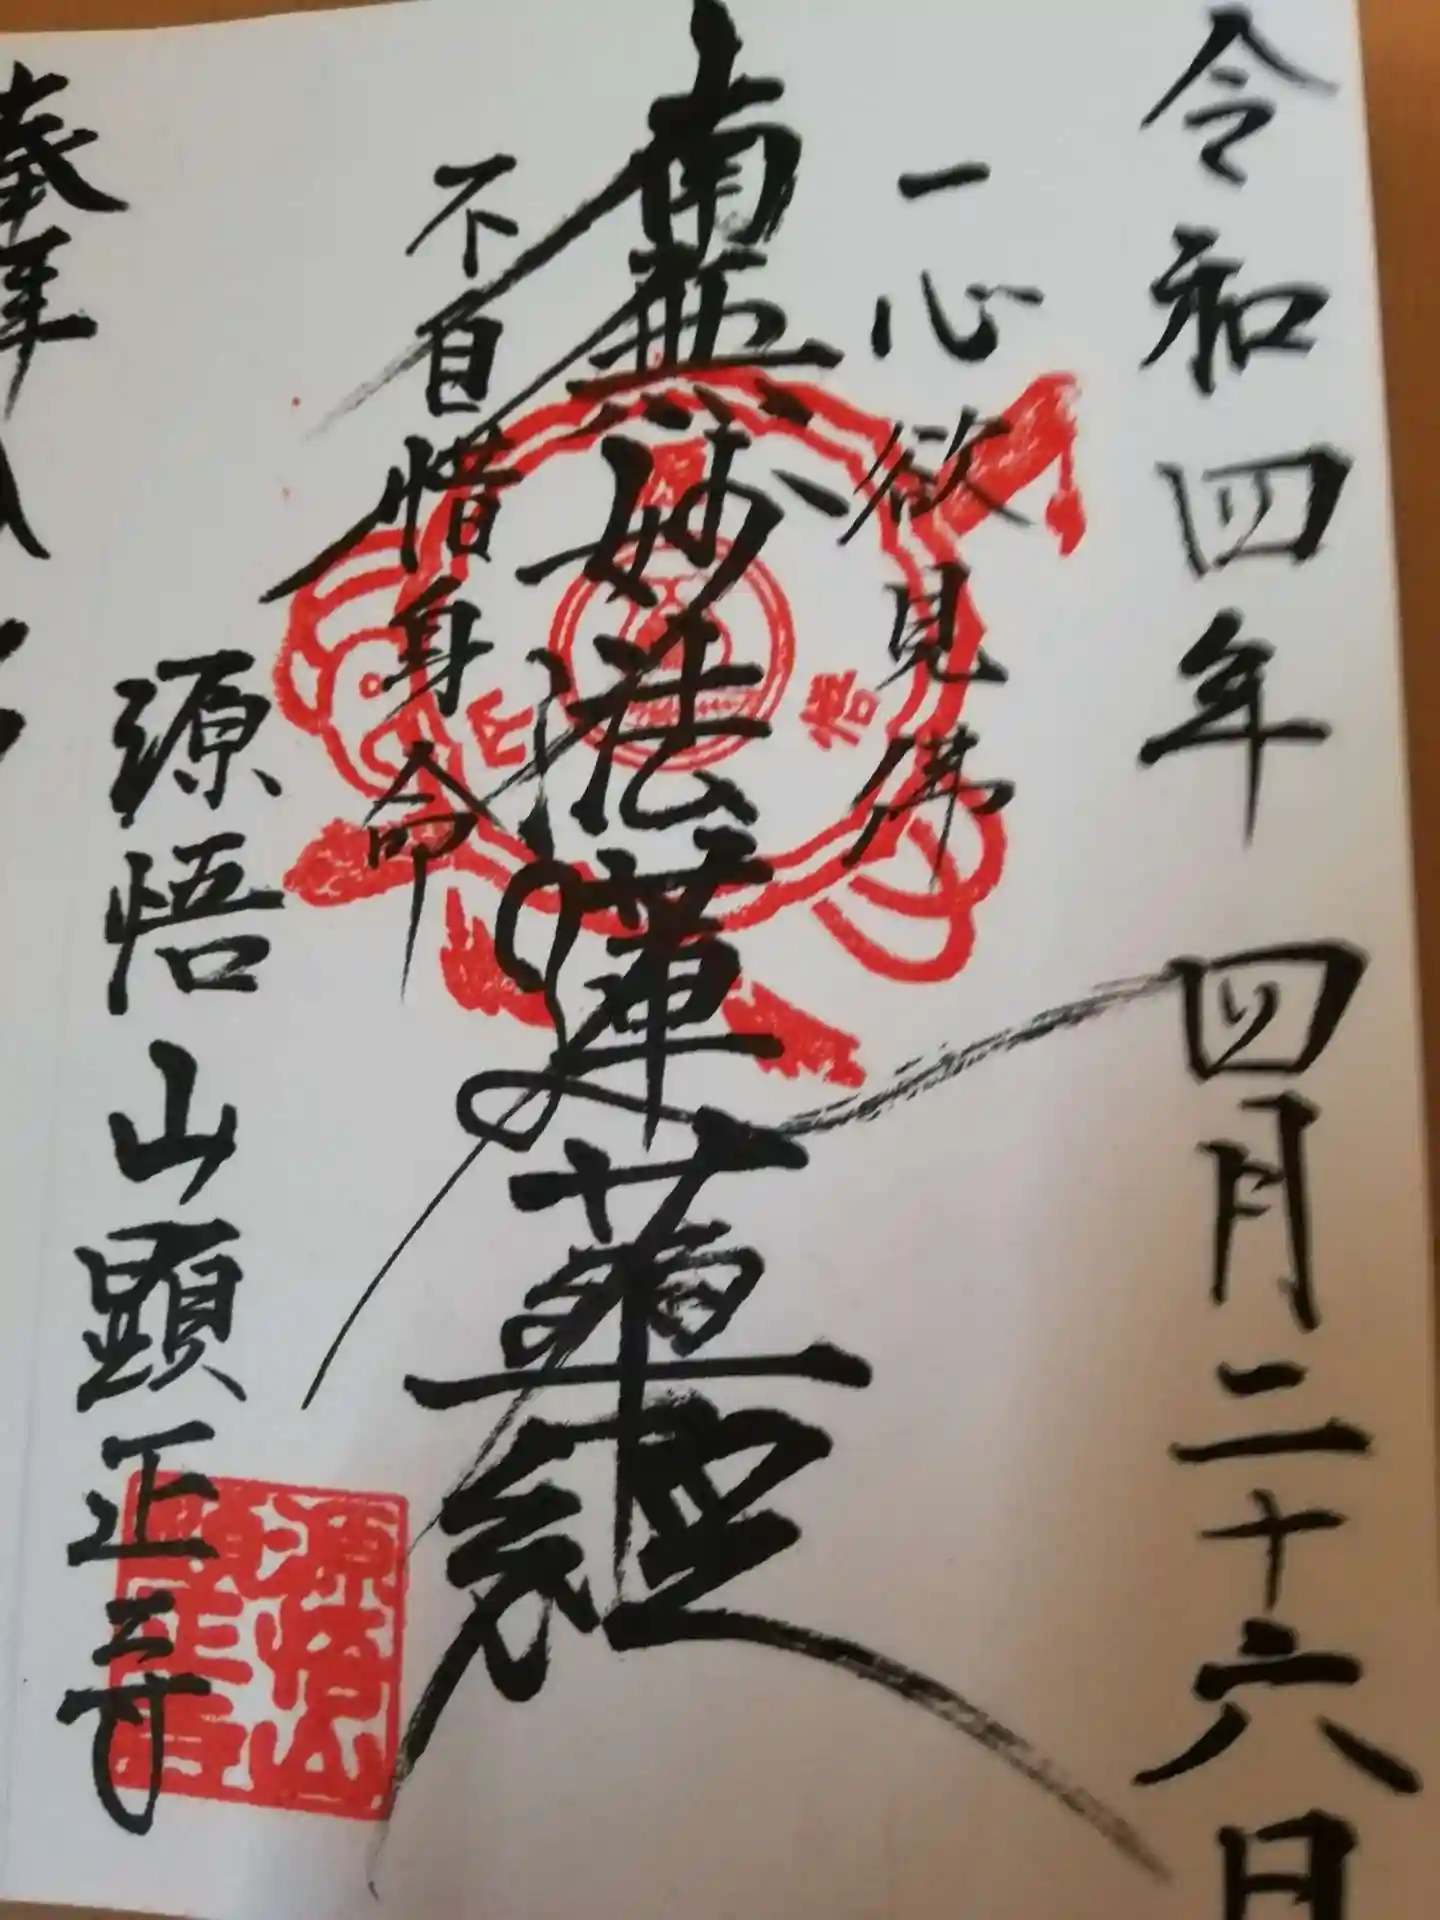 令和四年 四月二十六日
一心欲見佛
南無妙法蓮華經
不自惜身命
源悟山顕正寺
源悟山
顕正寺